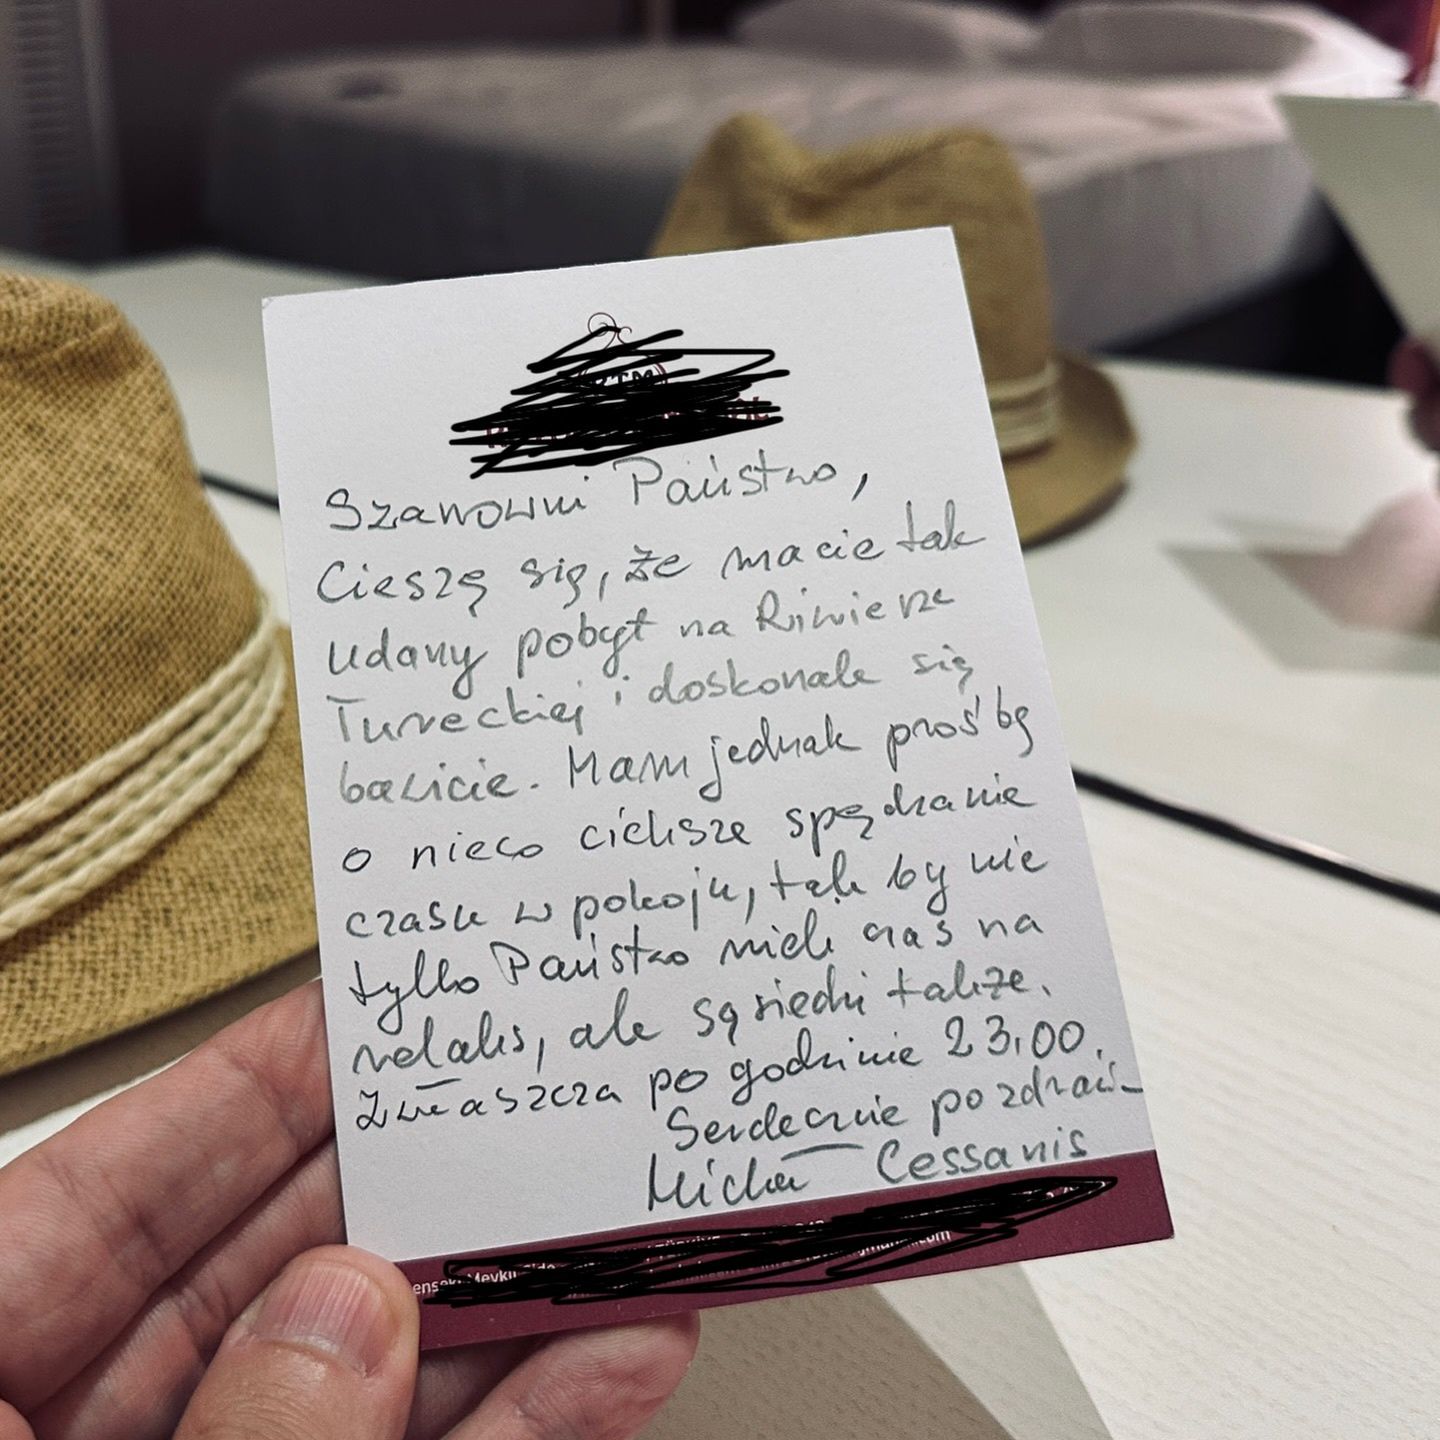 Szanowni Państwo,
Cieszę się, że macie tak
udany pobyt na Riwierze
Tureckiej i doskonale się
bawicie. Mam jednak prośbę
o nieco cichsze spędzanie
czasu w pokoju, tak by nie
tylko Państwo mieli czas na
relaks, ale sąsiedzi także.
Zwłaszcza po godzinie 23.00.
Serdecznie pozdrawi-
Michał Cessanis
Mevkii
.com